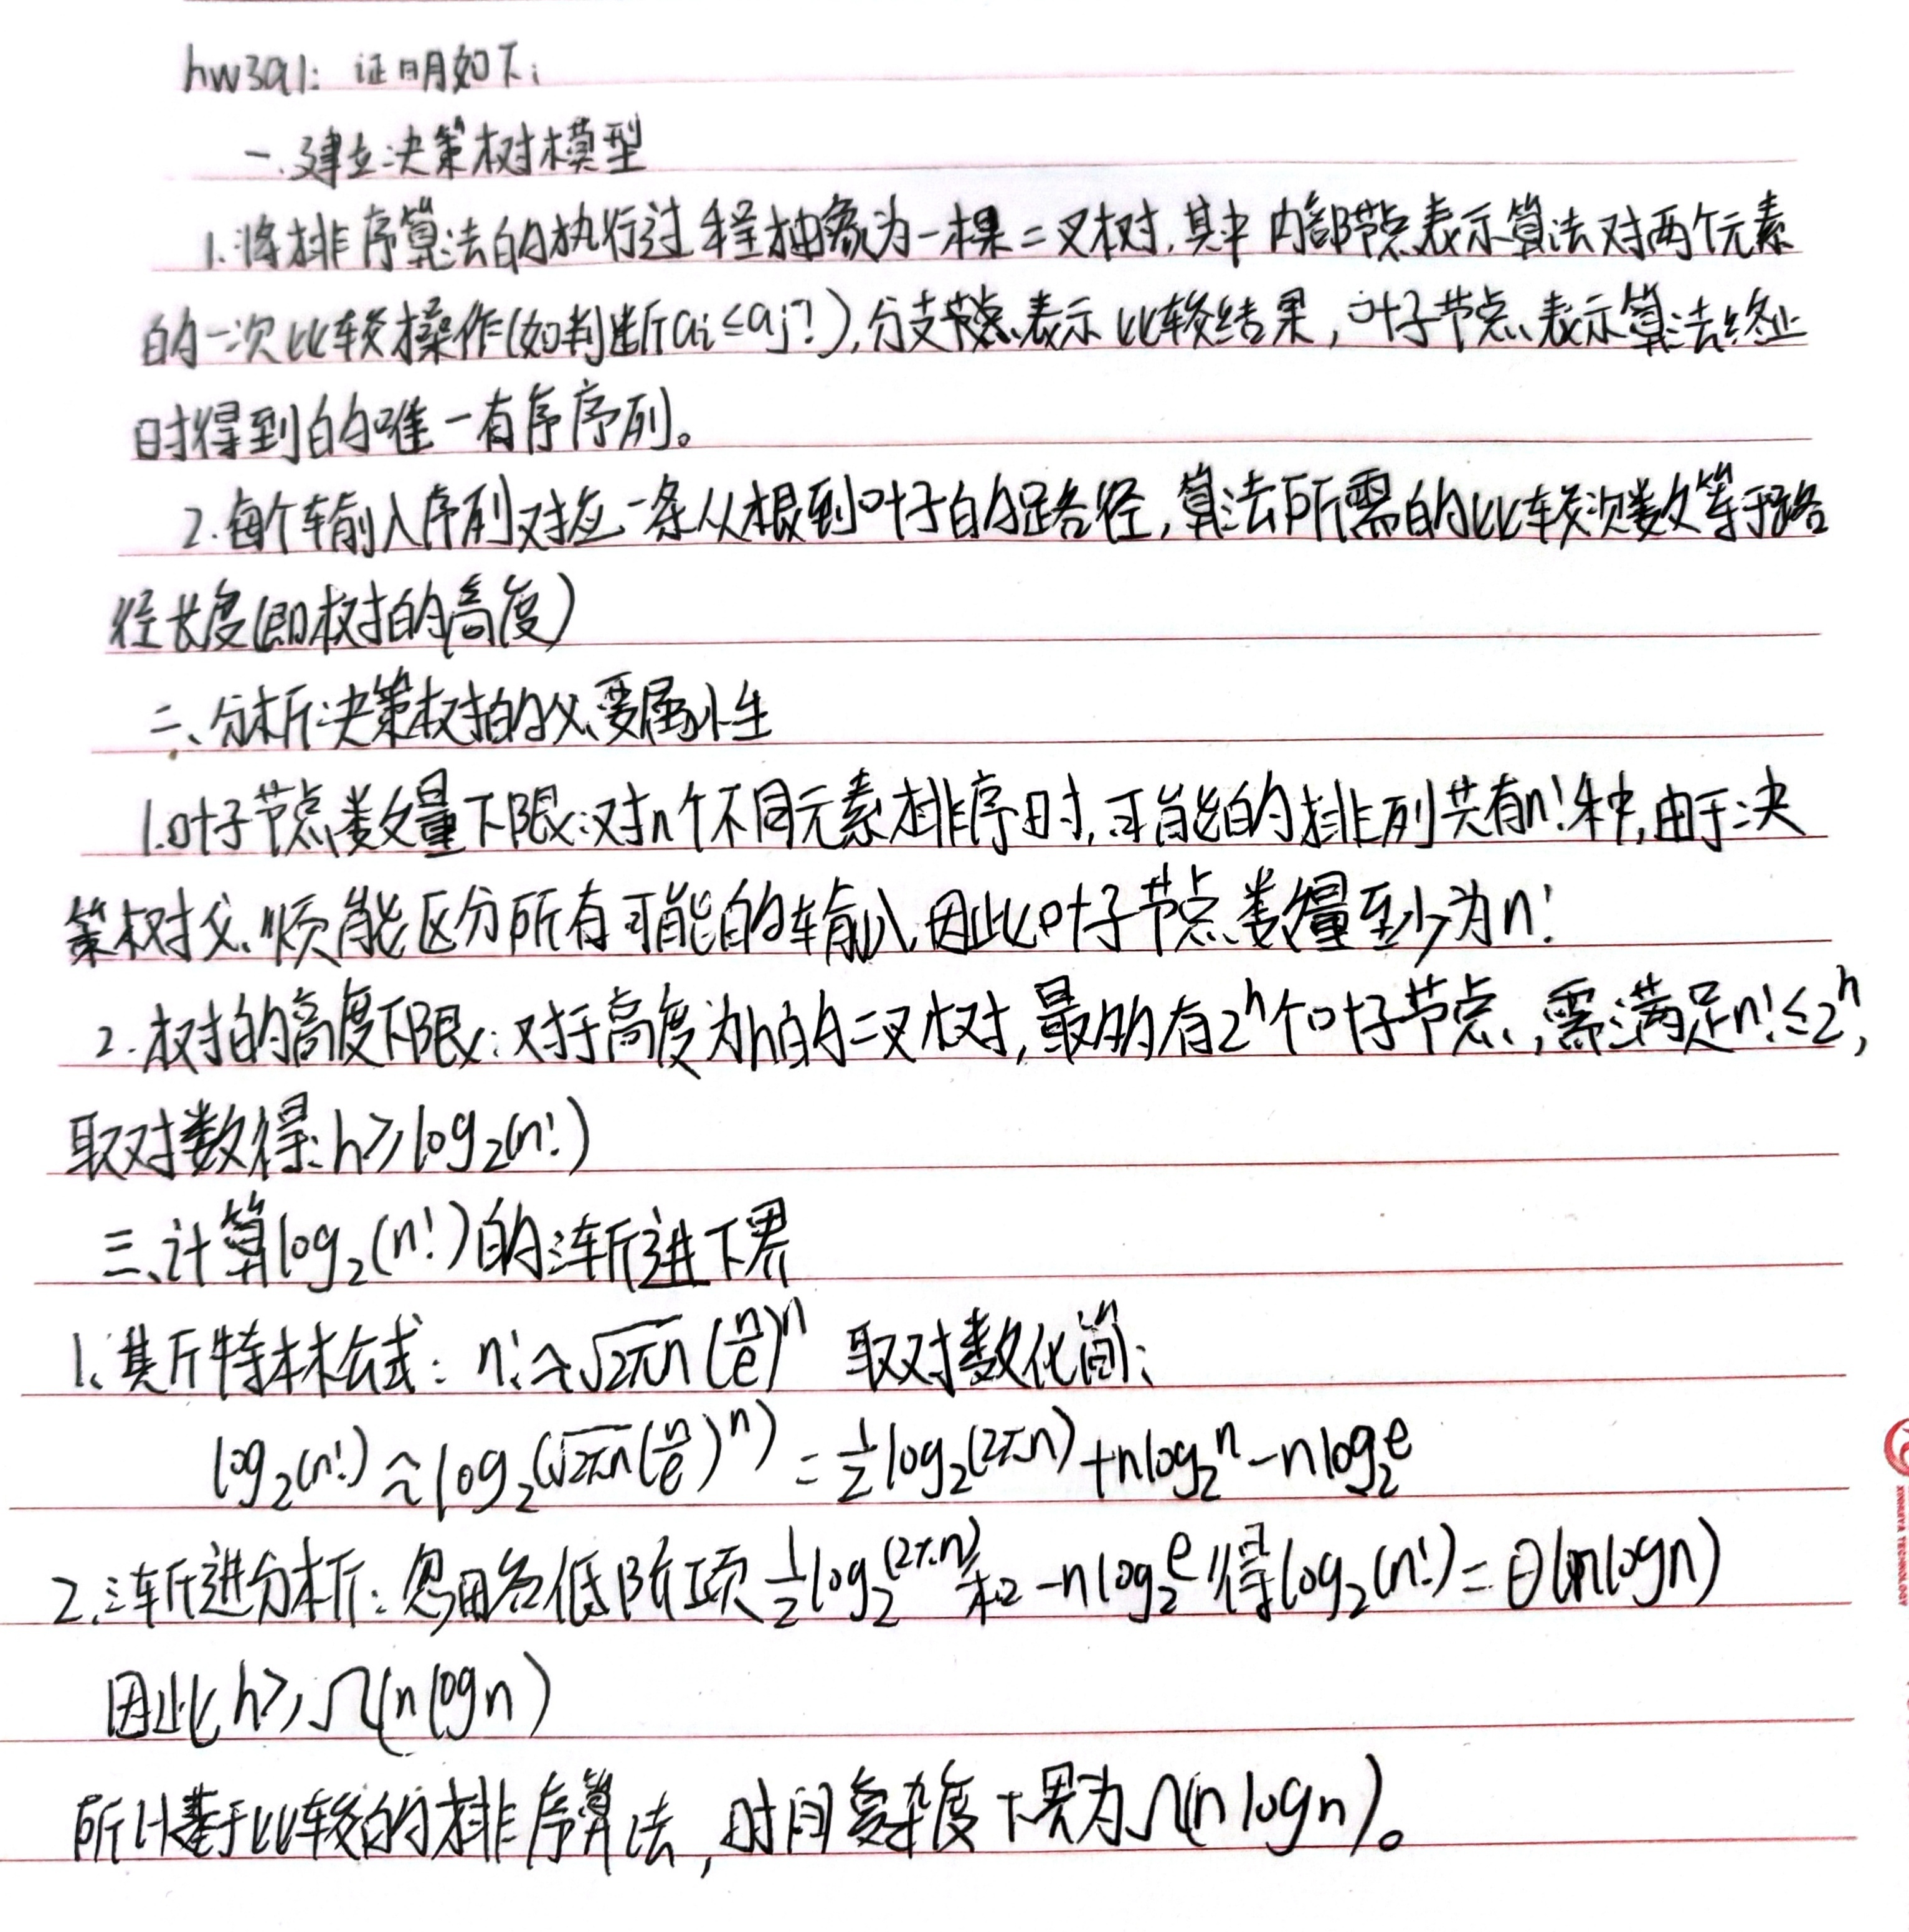 hw3q1: 证明如下:
一.建立决策树模型
1.将排序算法的执行过程抽象为一棵二叉树,其中内部节点表示算法对两个元素
的一次比较操作(如判断ai≤aj?),分支节点表示比较结果,叶子节点表示算法终止
时得到的唯一有序序列。
2.每个输入序列对应一条从根到叶子的路径,算法所需的比较次数等于路
径长度(即树的高度)
二、分析决策树的必要属性
1.叶子节点数量下限:对n个不同元素排序时,可能的排列共有n!种,由于决
策树必须能区分所有可能的输入,因此叶子节点数量至少为n!
2.树的高度下限:对于高度为h的二叉树,最多有2^h个叶子节点,需满足n!≤2^h,
取对数得:h≥log₂(n!)
三、计算log₂(n!)的渐进下界
1、其斤特林公式: n!≈√2πn (n/e)^n 取对数化简:
log₂(n!)≈log₂(√2πn(n/e)^n) = 1/2 log₂(2πn)+nlog₂n-nlog₂e
2.渐进分析:忽略低阶项 1/2 log₂(2πn)和-nlog₂e得log₂(n!)=Θ(nlogn)
因此h≥Ω(nlogn)
所以基于比较的排序算法,时间复杂度下界为Ω(nlogn)。